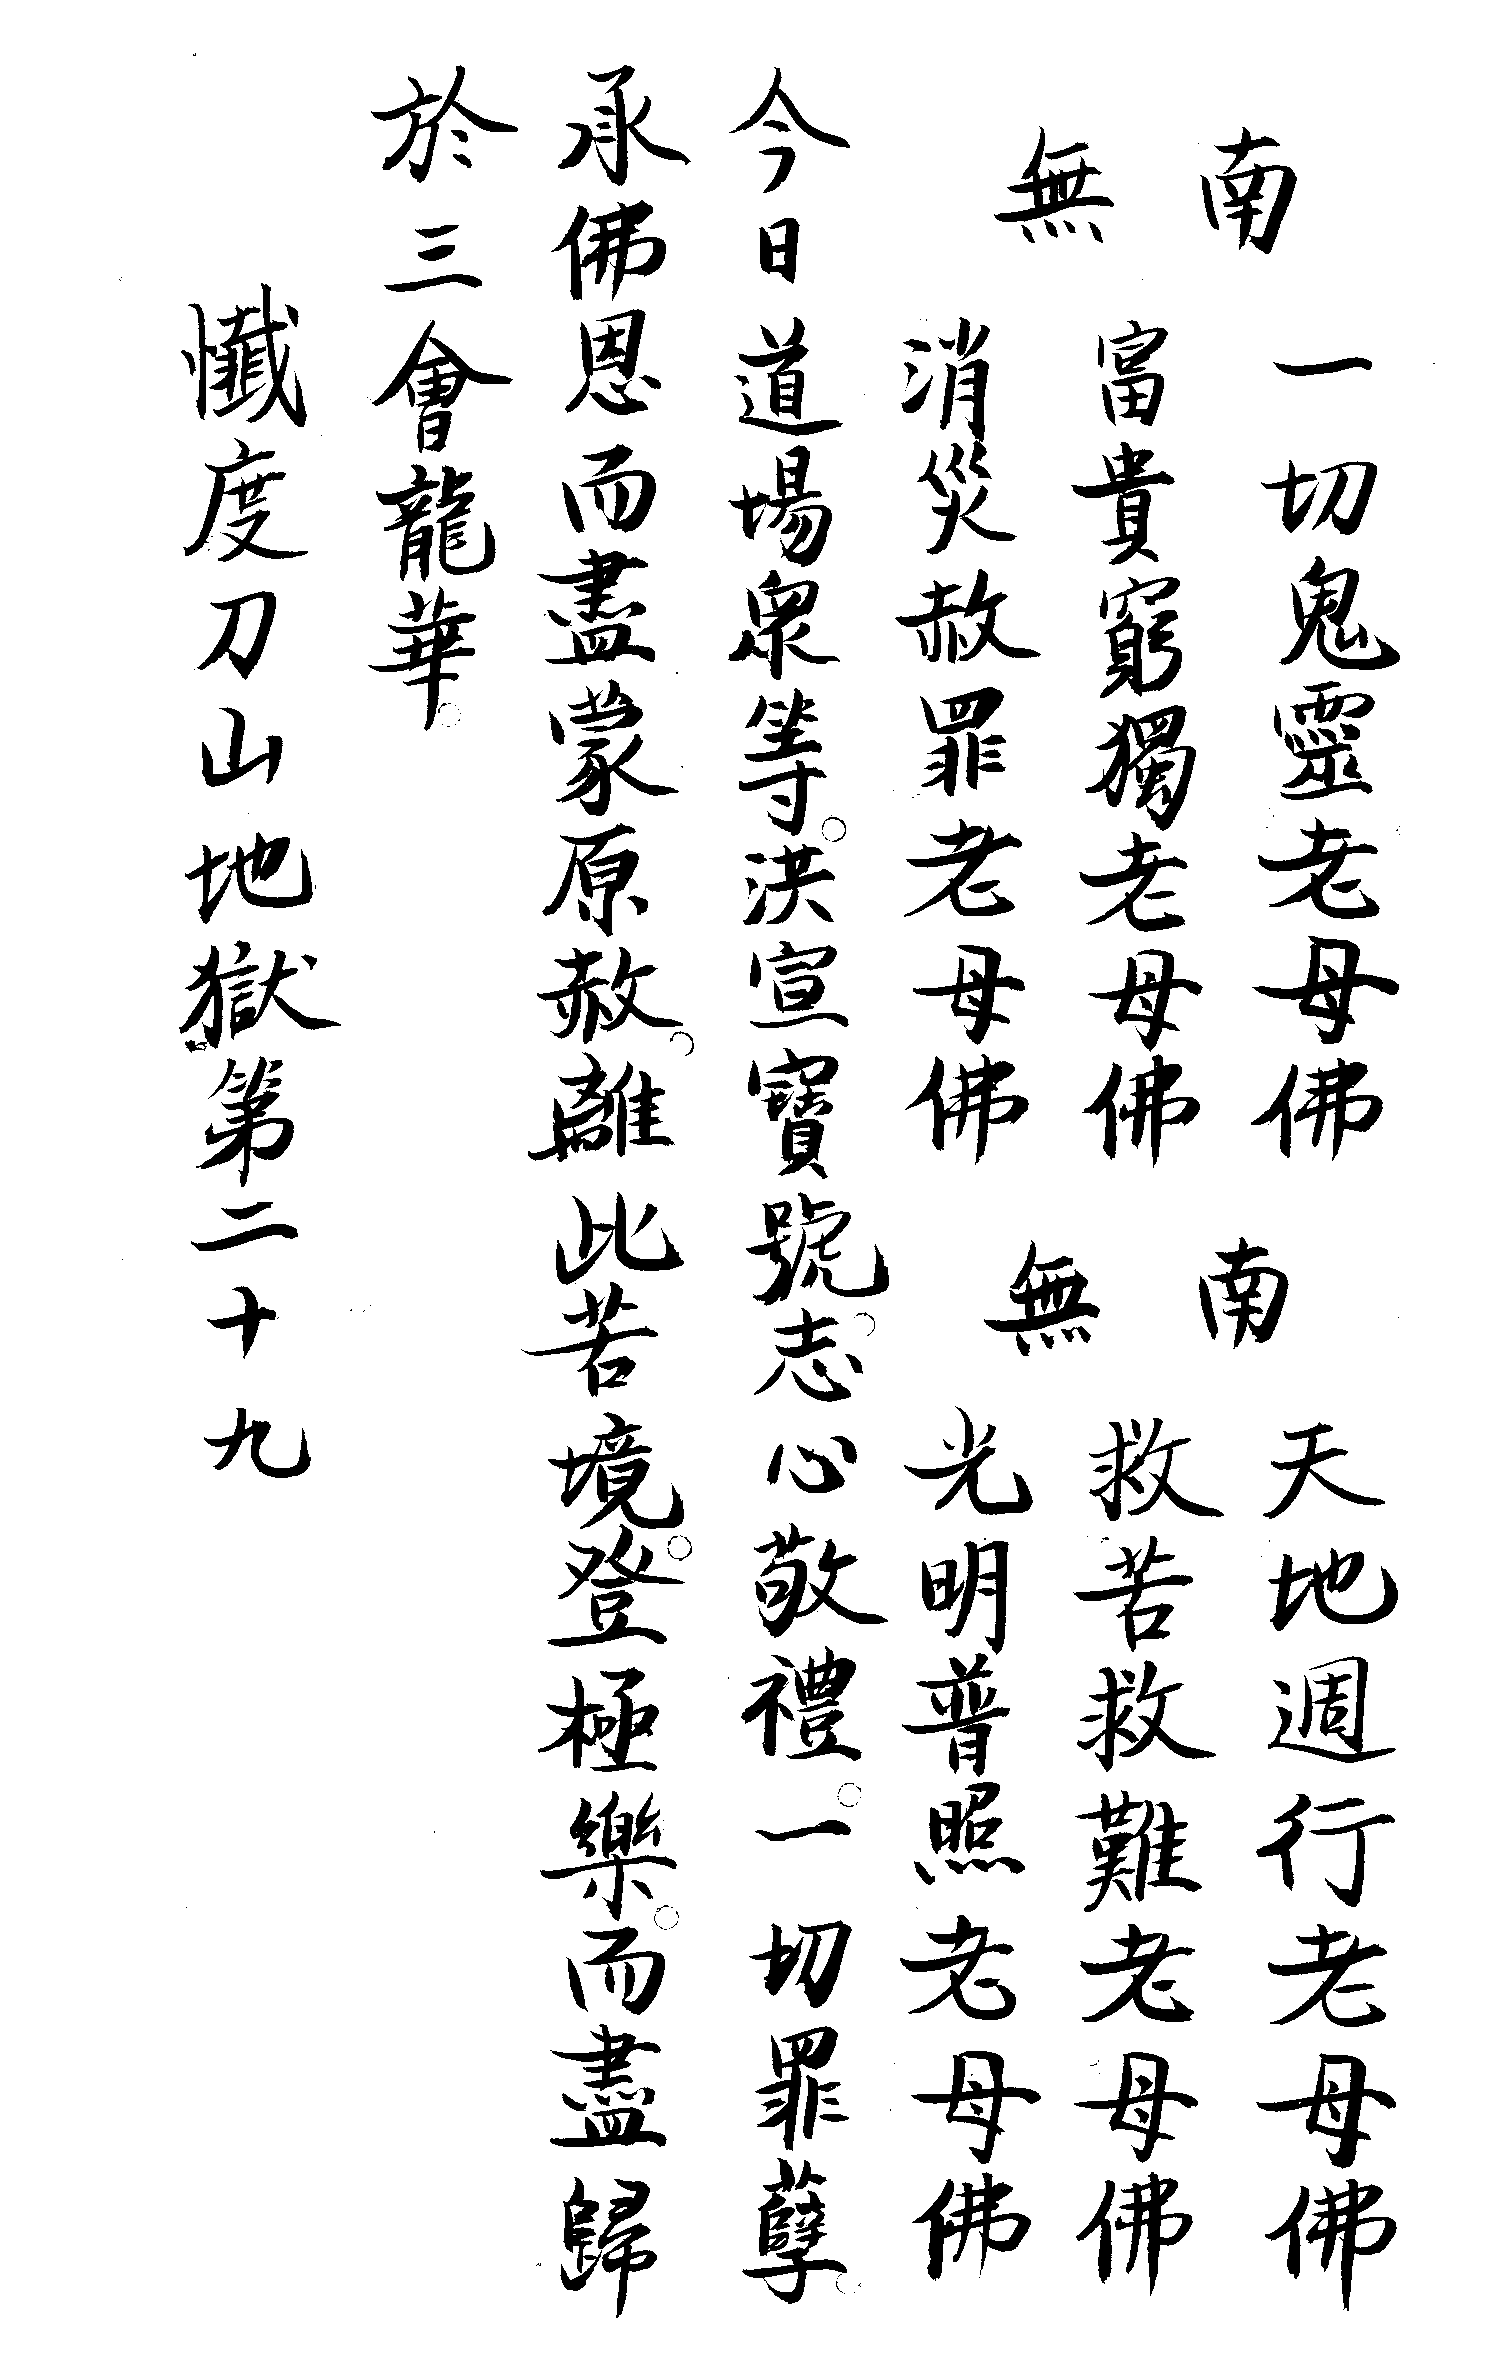 南無
一切鬼靈老母佛
富貴窮獨老母佛
消災赦罪老母佛
南無
天地週行老母佛
救苦救難老母佛
光明普照老母佛
今日道場衆等。洪宣寶號。志心敬禮。一切罪孽。
承佛恩而盡蒙原赦。離此苦境。登極樂。而盡歸
於三會龍華。
懺度刀山地獄第二十九